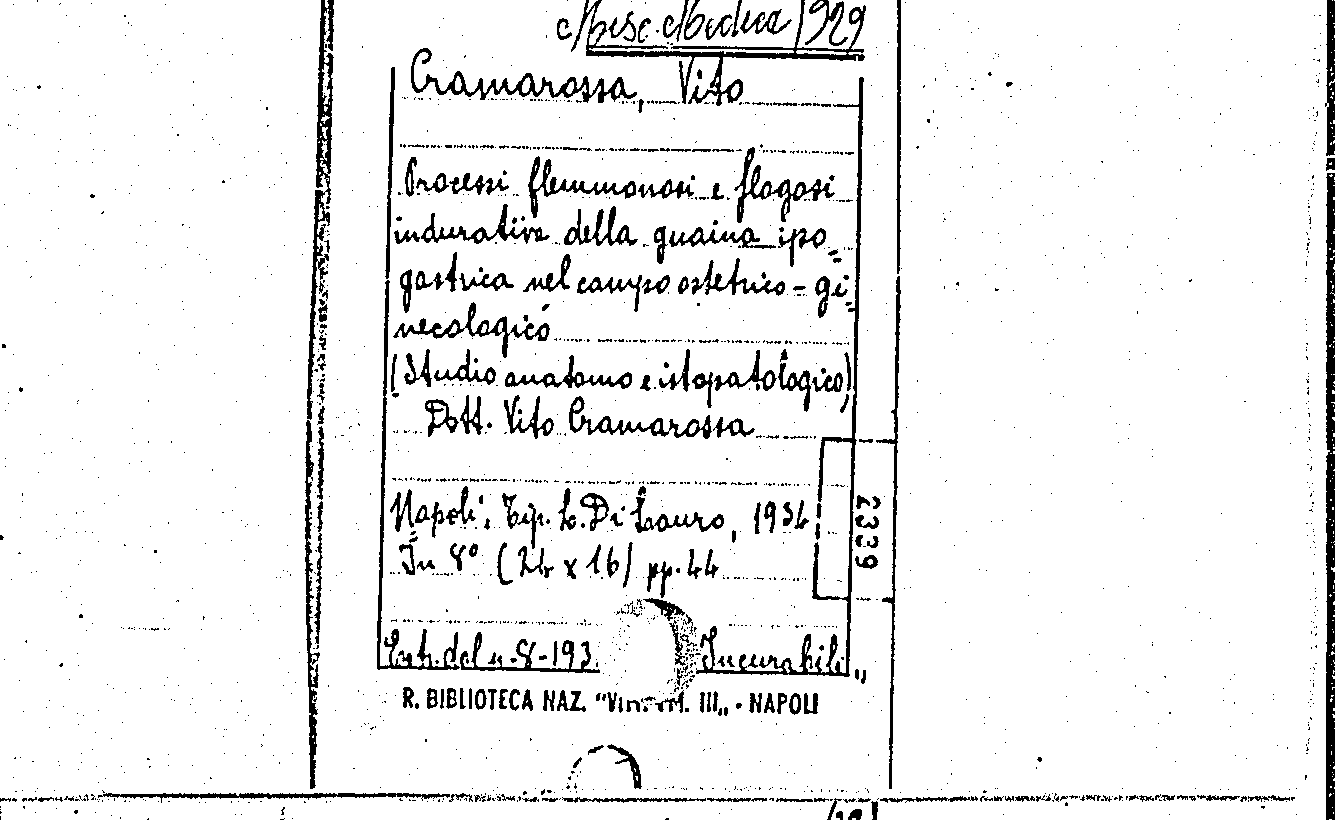 Misc. Medica 1929
Cramarossa, Vito
Processi flemmonosi e flogosi
indurative della guaina ipo=
gastrica nel campo ostetrico-gi=
necologico
(Studio anatomo e istopatologico)
Dott. Vito Cramarossa
Napoli, Tip. L. Di Lauro, 1934
In 8° (24 x 16) pp. 44
2339
Estr. del n. 8-193 Incurabili„
R. BIBLIOTECA NAZ. III„ - NAPOLI